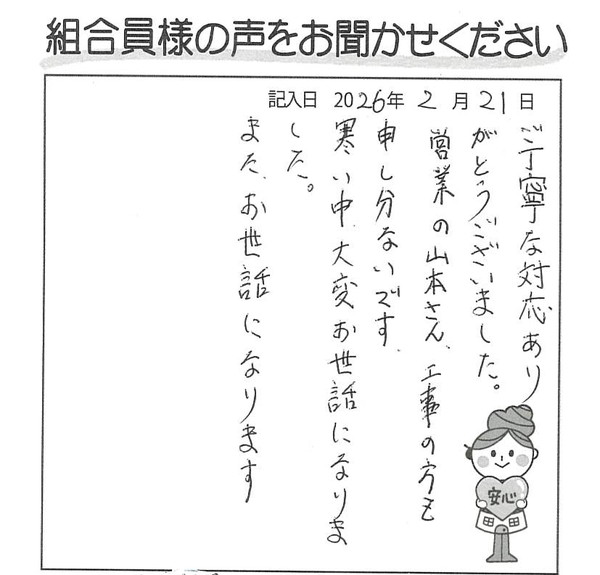 組合員様の声をお聞かせください
記入日 2026年 2月21日
ご丁寧な対応あり
がとうございました。
営業の山本さん、工事の方も
申し分ないです。
寒い中、大変お世話になりま
した。
また、お世話になります
安心